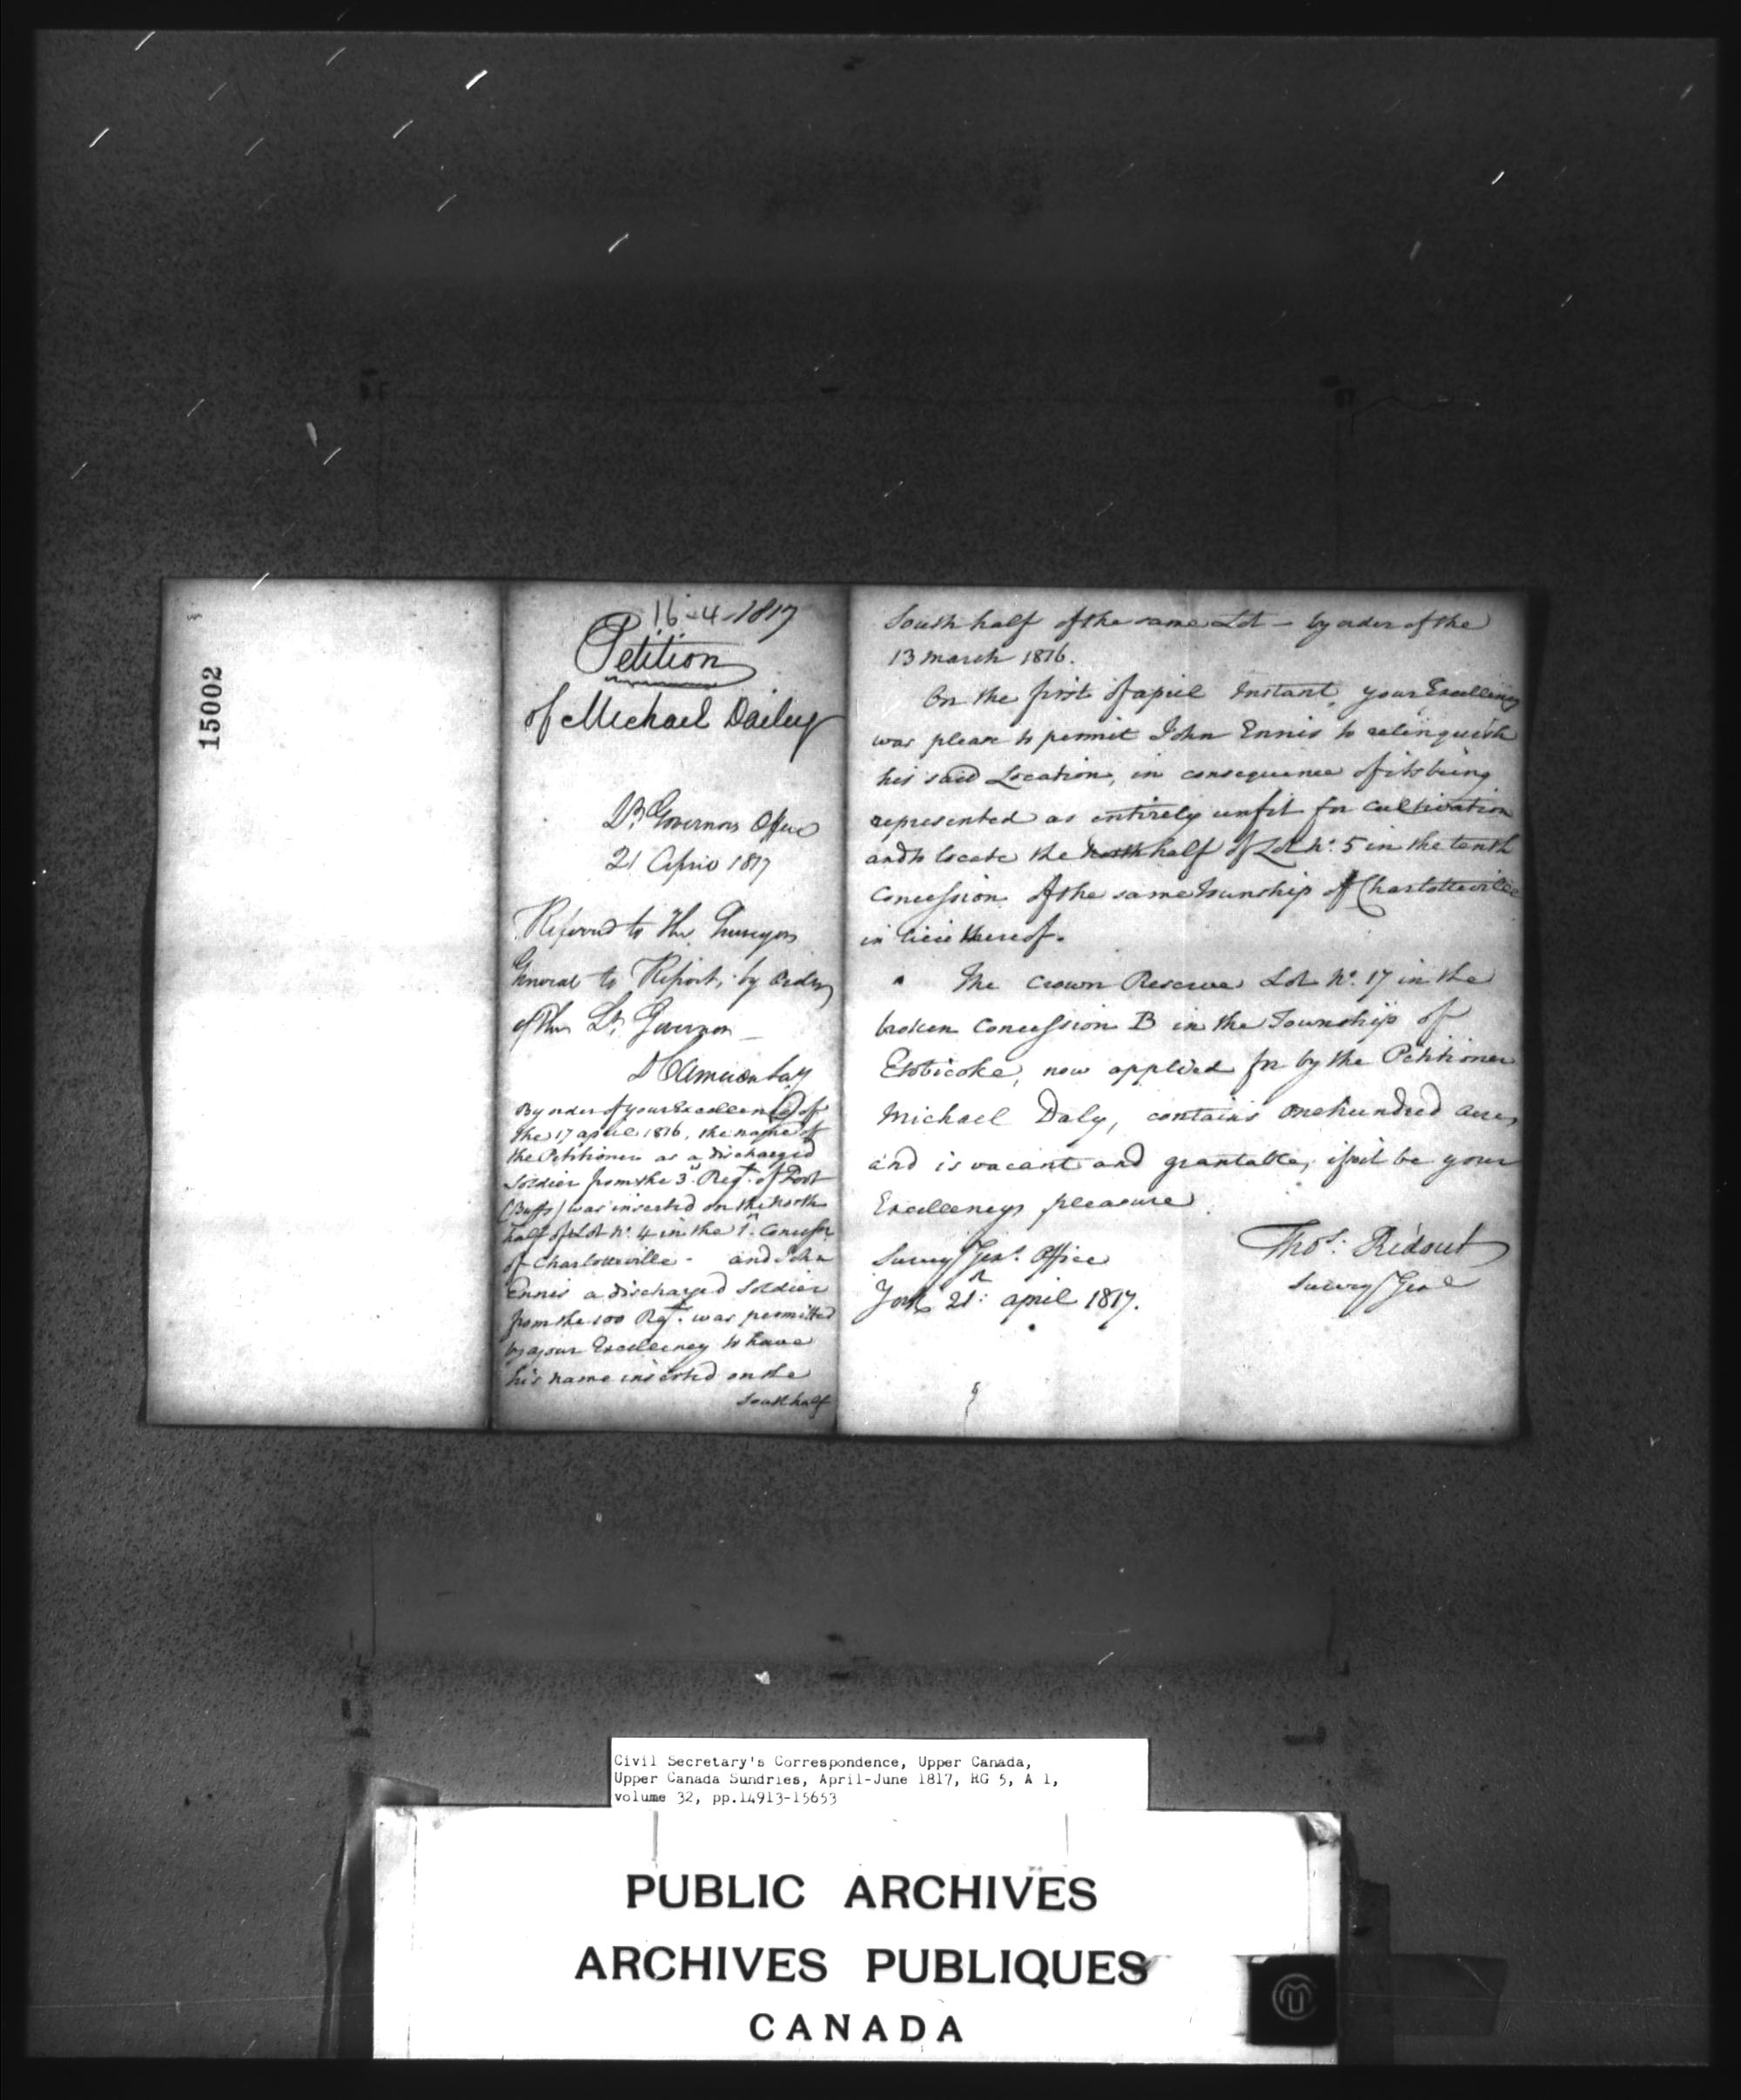 15002
16-4-1817
Petition
of Michael Dailey
Lt. Governors Office
21 April 1817
Referred to the Surveyor
General to Report, by order
of the Lt. Governor
By order of your Excellency of
the 17 april 1816, the name of
the Petitioner as a discharged
soldier from the 3d. Regt. of Foot
(Buffs) was inserted on the North
half of Lot No. 4 in the 1st. Concession
of Charlotteville - and John
Ennis a discharged soldier
from the 100 Regt. was permitted
by your Excellency to have
his name inserted on the
South half
South half of the same Lot - by order of the
13 march 1816.
On the first of april Instant, your Excellency
was please to permit John Ennis to relinquish
his said Location, in consequence of its being
represented as entirely unfit for cultivation
and to locate the North half of Lot No. 5 in the tenth
Concession of the same Township of Charlotteville
in lieu thereof.
The Crown Reserve Lot No. 17 in the
broken Concession B in the Township of
Etobicoke, now applied for by the Petitioner
Michael Daly, contains one hundred acres
and is vacant and grantable, if it be your
Excellencys pleasure.
Survey Genl. Office
York 21st april 1817.
Thos. Ridout
Survey Genl
Civil Secretary's Correspondence, Upper Canada,
Upper Canada Sundries, April-June 1817, RG 5, A 1,
volume 32, pp.14913-15653
PUBLIC ARCHIVES
ARCHIVES PUBLIQUES
CANADA